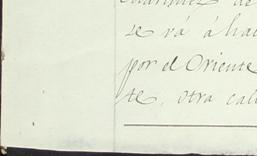 se vá á hac
por el Oriente
te, otra call